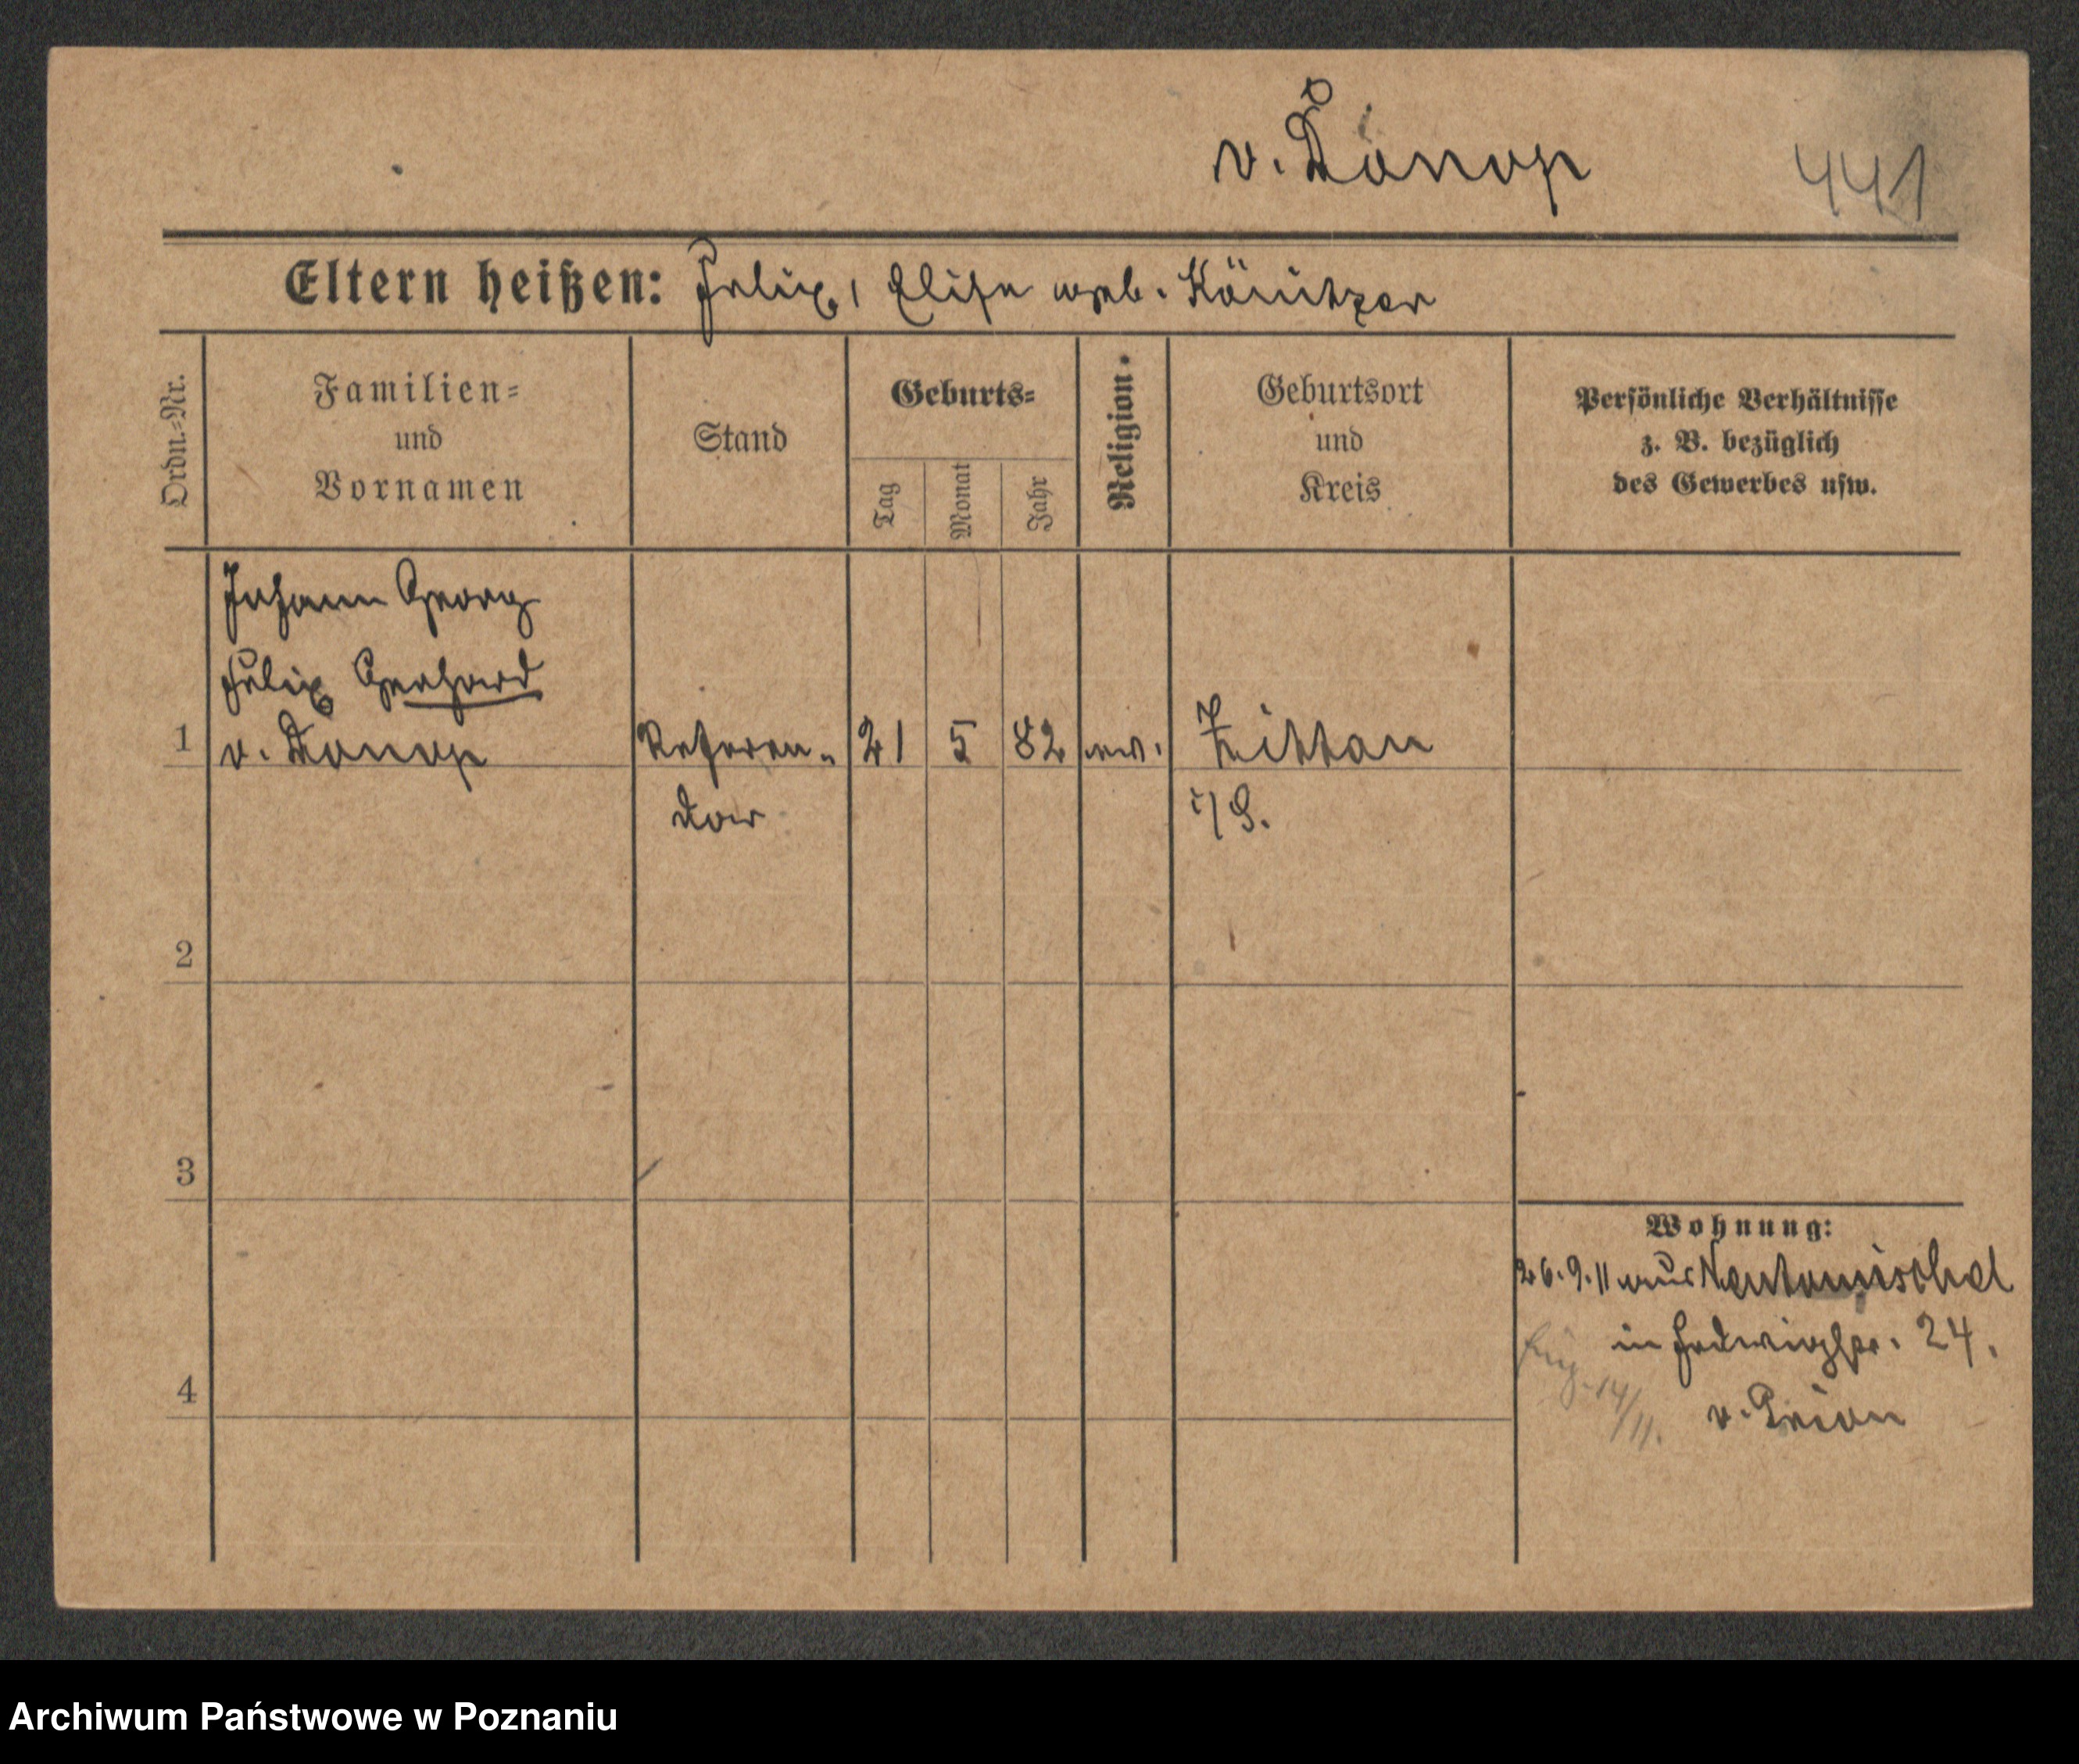 v. Donop
441
Eltern heißen: Felix, Elise geb. Könitzer
Ordn.=Nr.
Familien=
und
Vornamen
Stand
Geburts=
Tag
Monat
Jahr
Religion.
Geburtsort
und
Kreis
Persönliche Verhältnisse
z. B. bezüglich
des Gewerbes usw.
Johann Georg
Felix Gerhard
1 v. Donop Referen- 21 5 82 ev. Zittau
dar i/S.
2
3
4
Wohnung:
26.9.11 aus Neutomischel
in Hedwigstr. 24.
14/11.
Archiwum Państwowe w Poznaniu